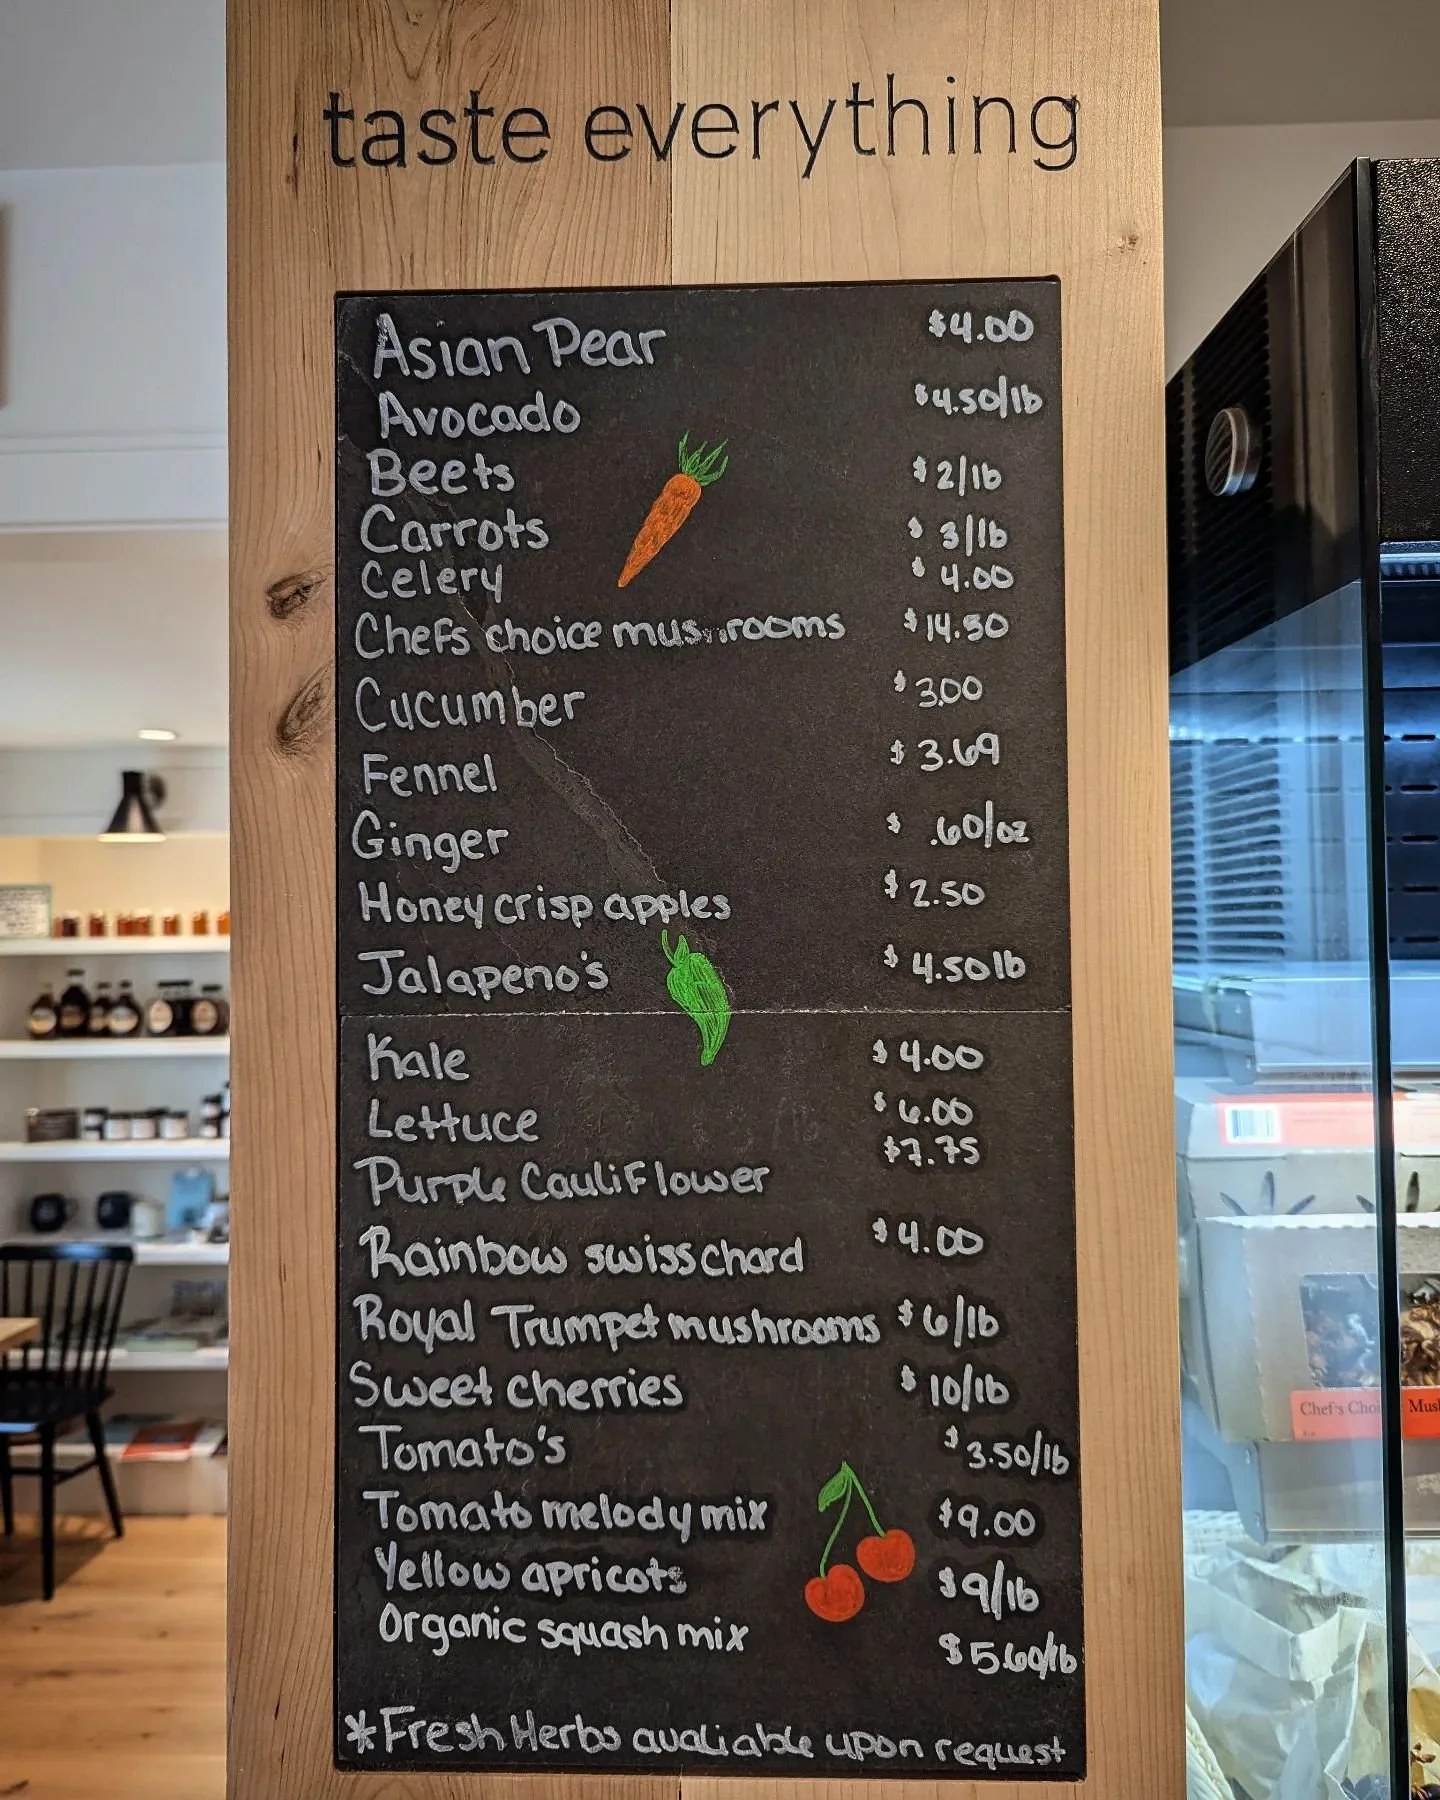 taste everything
Asian Pear $4.00
Avocado $4.50/lb
Beets $2/lb
Carrots $3/lb
Celery $4.00
Chefs choice mushrooms $14.50
Cucumber $3.00
Fennel $3.69
Ginger $.60/oz
Honey crisp apples $2.50
Jalapeno's $4.50lb
Kale $4.00
Lettuce $6.00
Purple Cauliflower $7.75
Rainbow swiss chard $4.00
Royal Trumpet mushrooms $6/lb
Sweet cherries $10/lb
Tomato's $3.50/lb
Tomato melody mix $9.00
Yellow apricots $9/lb
Organic squash mix $5.60/lb
*Fresh Herbs avaliable upon request
Chef's